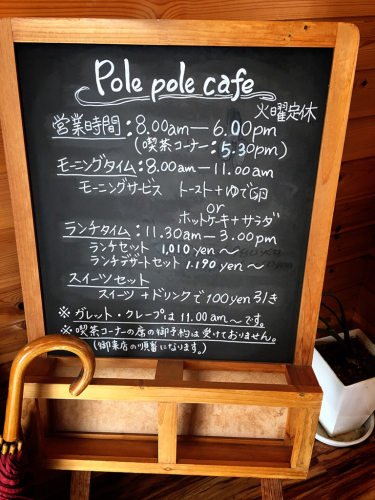 Pole pole cafe
火曜定休
営業時間:8.00am—6.00pm
(喫茶コーナー:5.30pm)
モーニングタイム:8.00am—11.00am
モーニングサービス トースト+ゆで卵
or
ホットケーキ+サラダ
ランチタイム:11.30am—3.00pm
ランチセット 1,010yen〜
ランチデザートセット 1.190yen〜
スイーツセット
スイーツ+ドリンクで100yen引き
※ガレット・クレープは11.00am〜です。
※喫茶コーナーの席の御予約は受けておりません。
(御来店の順番になります。)